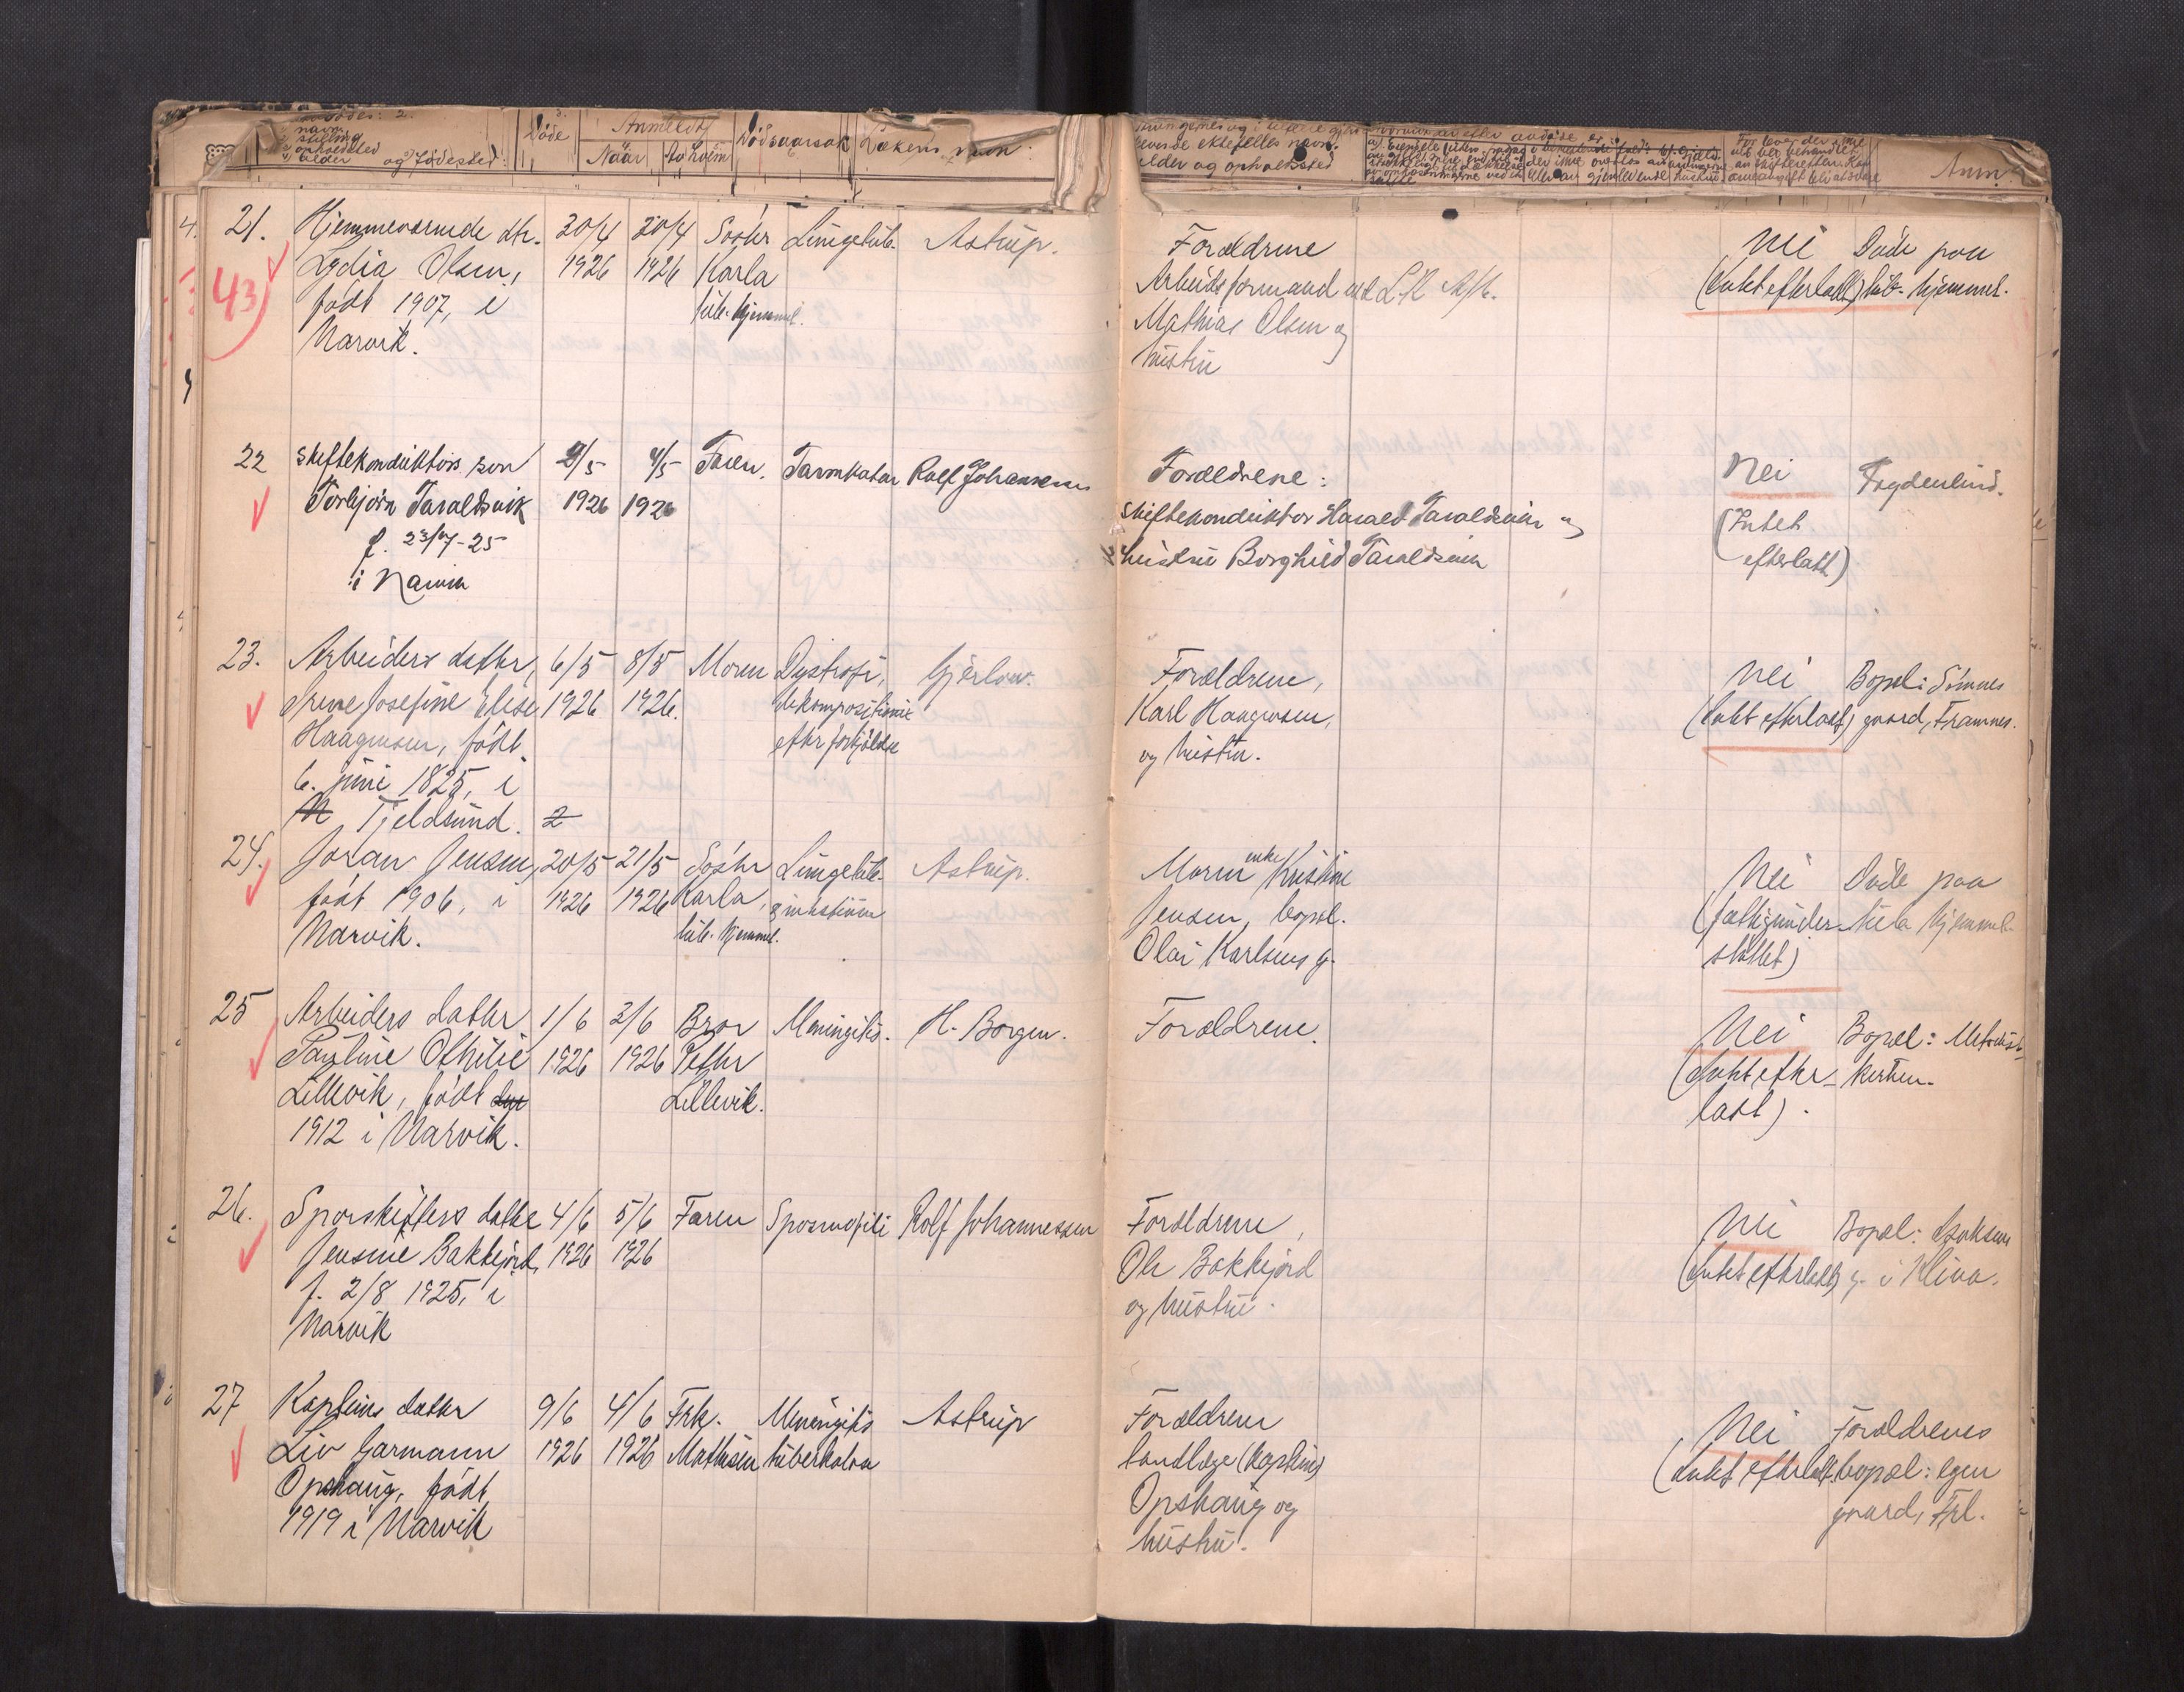 Døde
Anmeldt
Naar
av hvem
Dødsaarsak
Lækens navn
og fødested:
alder og opholdssted
Anm.
43
21.
Hjemmeværende dtr.
Lydia Olsen,
født 1907, i
Narvik.
20/4
1926
20/4
1926
Søster
Karla
tub. hjemmet.
Lungetub.
Astrup.
Forældrene
Arbeidsformand
Mathias Olsen og
hustru
Nei
(Intet efterlatt)
Døde paa
tub. hjemmet.
22
Skiftekonduktørs søn
Torbjørn Taraldsvik
i Narvik
1926
4/5
1926
Faren.
Tarmkatar
Rolf Johannessen
Forældrene:
Skiftekonduktør Harald Taraldsvik og
hustru Borghild Taraldsvik
Nei
(Intet
efterlatt)
Fagdenlund.
23.
Arbeiders datter,
Irene Josefine Elise
Haagensen, født
6. juni 1825, i
N Tjeldsund.
6/5
1926
8/5
1926.
Moren
Dystrofi,
dekomposition
Gjerløw.
Forældrene,
Karl Haagensen,
og hustru.
Nei
(Intet efterlatt)
Bopel: Simnes
gaard, Framnes.
24.
Johan Jensen,
født 1906, i
Narvik.
20/5
1926
21/5
1926
Søster
Karla,
tub. hjemmet.
Lungetub.
Astrup.
Moren enke Kristine
Jensen, bopel.
Olai Karlsens g.
Nei
(fattigunder-
støttet)
Døde paa
tub. hjemmet.
25
Arbeiders datter
Pauline Othilie
Lillevik, født
1912 i Narvik.
1/6
1926
3/6
1926
Bror
Petter
Lillevik.
Meningitis.
H. Borgen.
Forældrene.
Nei
(Intet efter-
latt).
Bopæl: Metodist-
kirken.
26.
Sporskifters datter
Jensine Bakkejord,
f. 2/8 1925, i
Narvik
4/6
1926
5/6
1926
Faren
Spasmofili
Rolf Johannessen
Forældrene,
Ole Bakkejord
og hustru.
Nei
(Intet efterlatt)
Bopæl: Isaksens
g. i Kleiva.
27
Kapteins datter
Liv Garmann
Opshaug, født
1919 i Narvik
9/6
1926
4/6
1926
Frk.
Mathisen
Meningitis
tuberkulosa
Astrup
Forældrene
tandlæge (kaptein)
Opshaug og
hustru.
Nei
(Intet efterlatt)
Forældrenes
bopæl: egen
gaard, Frl.